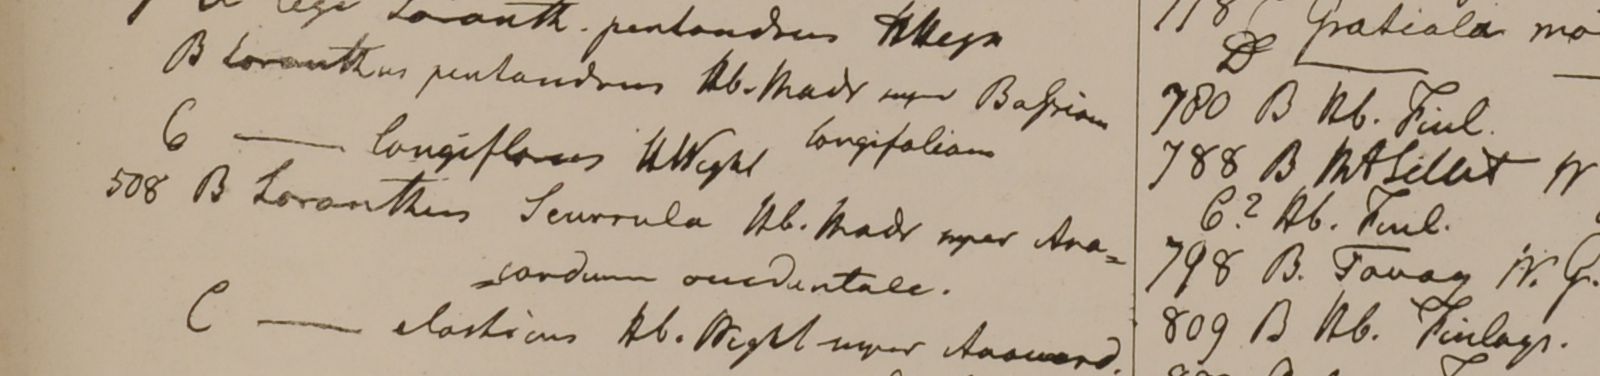 Loranth. pentandrus HWeyn
B Loranthus pentandrus Hb. Madr super Bassiam
longifoliam
C — longiflorus HWight
508 B Loranthus Scurrula Hb. Madr super Ana=
=cardium occidentale.
C — elasticus Hb. Wight super Anacard.
718 Gratiola mo
D —
780 B Hb. Finl.
788 B Mt Sillet W
C? Hb. Finl.
798 B. Tavoy W. G.
809 B Hb. Finlays.